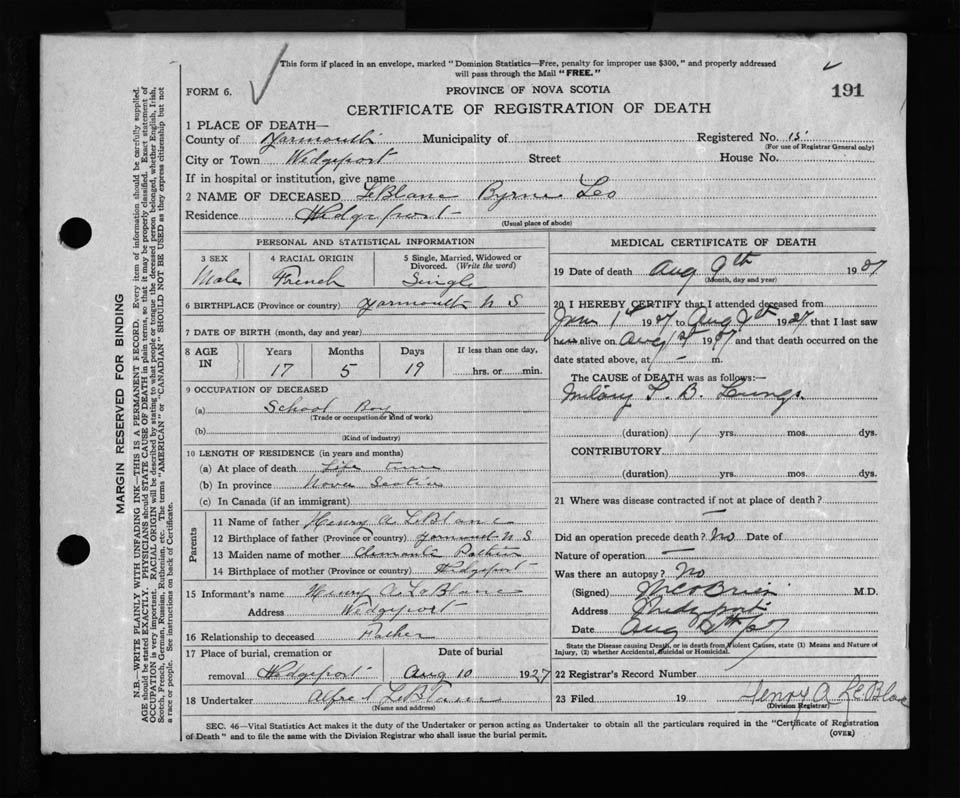 This form if placed in an envelope, marked "Dominion Statistics—Free, penalty for improper use $300," and properly addressed
will pass through the Mail "FREE."
FORM 6. PROVINCE OF NOVA SCOTIA 191
CERTIFICATE OF REGISTRATION OF DEATH
1 PLACE OF DEATH—
County of Yarmouth Municipality of Registered No. 15
(For use of Registrar General only)
City or Town Wedgeport Street House No.
If in hospital or institution, give name
2 NAME OF DECEASED LeBlanc Byrne Leo
Residence Wedgeport
(Usual place of abode)
PERSONAL AND STATISTICAL INFORMATION
3 SEX 4 RACIAL ORIGIN 5 Single, Married, Widowed or Divorced. (Write the word)
Male French Single
6 BIRTHPLACE (Province or country) Yarmouth N S
7 DATE OF BIRTH (month, day and year)
8 AGE IN Years Months Days If less than one day,
17 5 19 hrs. or min.
9 OCCUPATION OF DECEASED
(a) School Boy
(Trade or occupation or kind of work)
(b)
(Kind of industry)
10 LENGTH OF RESIDENCE (in years and months)
(a) At place of death Life time
(b) In province Nova Scotia
(c) In Canada (if an immigrant)
Parents
11 Name of father Henry A. LeBlanc
12 Birthplace of father (Province or country) Yarmouth N S
13 Maiden name of mother
14 Birthplace of mother (Province or country) Wedgeport
15 Informant's name Henry A. LeBlanc
Address Wedgeport
16 Relationship to deceased Father
17 Place of burial, cremation or removal Date of burial
Wedgeport Aug 10 1927
18 Undertaker Alfred LeBlanc
(Name and address)
MEDICAL CERTIFICATE OF DEATH
19 Date of death Aug 9th 1927
(Month, day and year)
20 I HEREBY CERTIFY that I attended deceased from
1st 1927 to Aug 1927 that I last saw
him alive on Aug 1927 and that death occurred on the
date stated above, at — m.
The CAUSE of DEATH was as follows:—
T. B. Lungs
(duration) 1 yrs. mos. dys.
CONTRIBUTORY
(duration) yrs. mos. dys.
21 Where was disease contracted if not at place of death?
—
Did an operation precede death? No Date of
Nature of operation —
Was there an autopsy? No
(Signed) M.D.
Address Wedgeport
Date Aug
State the Disease causing Death, or in death from Violent Causes, state (1) Means and Nature of
Injury, (2) whether Accidental, Suicidal or Homicidal.
22 Registrar's Record Number
23 Filed 19 Henry A. LeBlanc
(Division Registrar)
SEC. 46—Vital Statistics Act makes it the duty of the Undertaker or person acting as Undertaker to obtain all the particulars required in the "Certificate of Registration
of Death" and to file the same with the Division Registrar who shall issue the burial permit. (OVER)
MARGIN RESERVED FOR BINDING
N.B.—WRITE PLAINLY WITH UNFADING INK—THIS IS A PERMANENT RECORD. Every item of information should be carefully supplied.
AGE should be stated EXACTLY. PHYSICIANS should STATE CAUSE OF DEATH in plain terms, so that it may be properly classified. Exact statement of
OCCUPATION is very important. RACIAL ORIGIN will be described by stating to what people or tongue the deceased person belonged, whether English, Irish,
Scotch, French, German, Russian, Ruthenian, etc. The terms "AMERICAN" or "CANADIAN" SHOULD NOT BE USED as they express citizenship but not
a race or people. See instructions on back of Certificate.